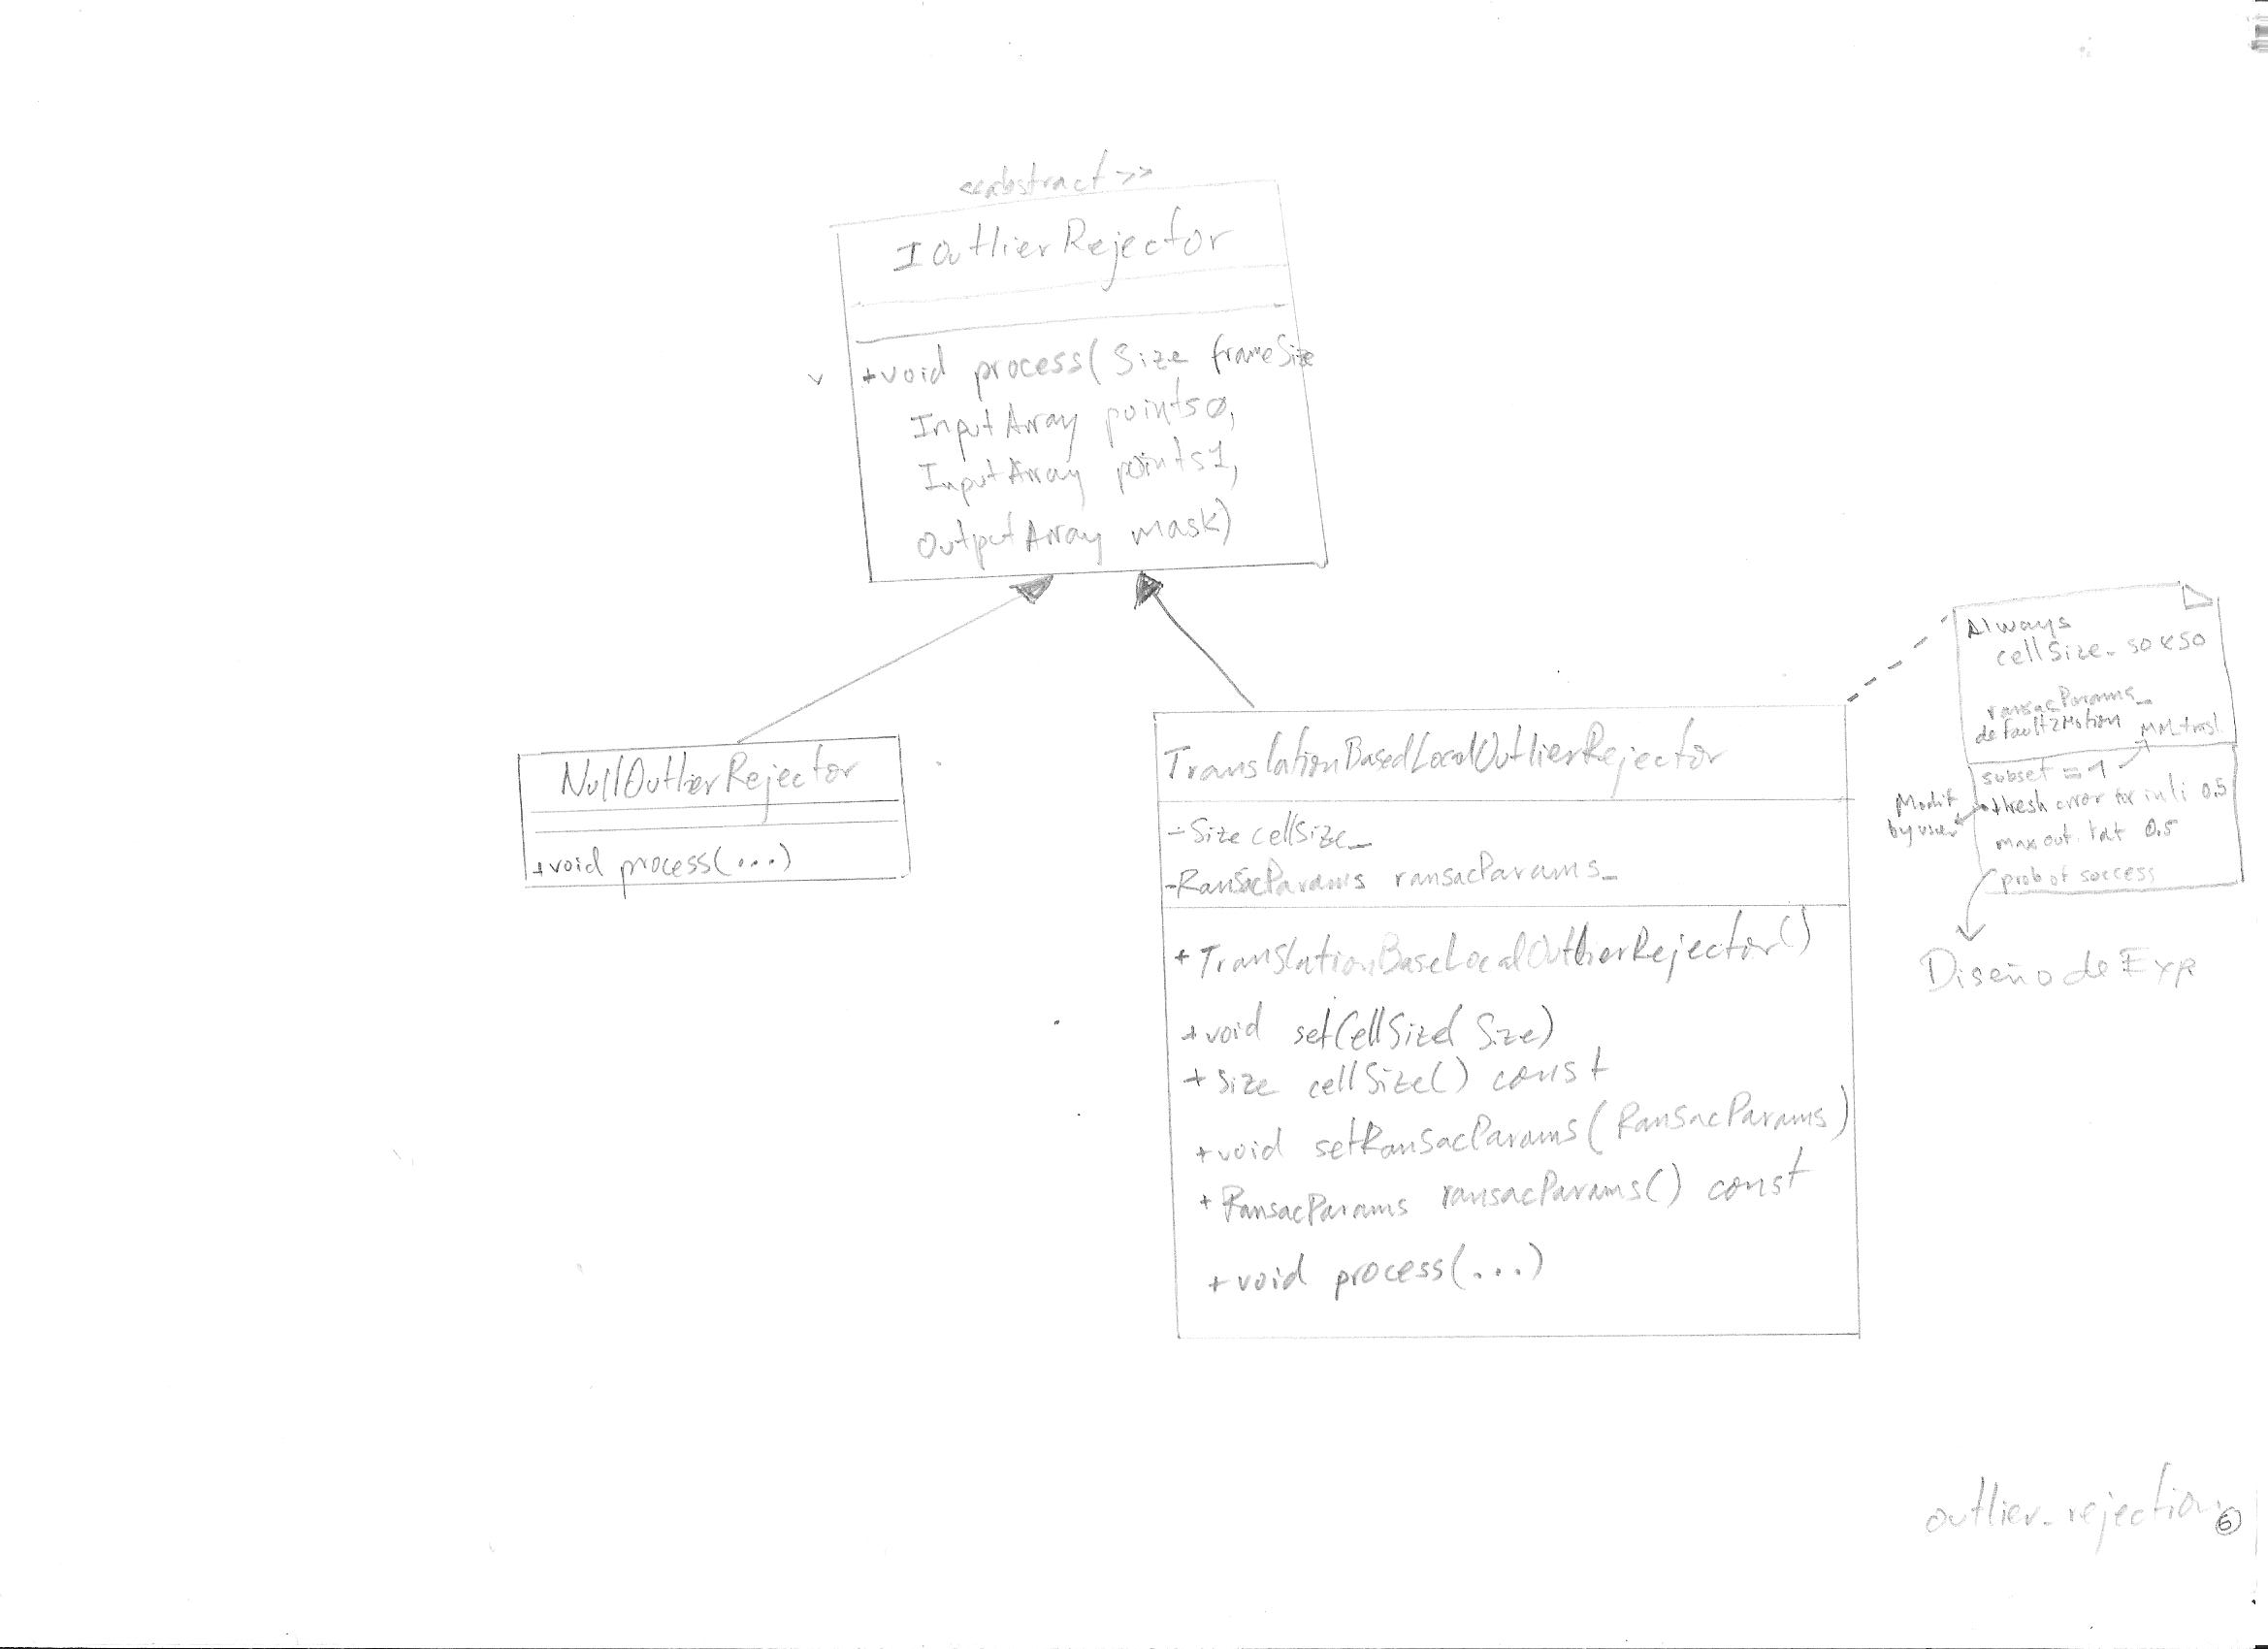 <<abstract>>
IOutlierRejector
v +void process(Size frameSize
InputArray points0,
InputArray points1,
OutputArray mask)
NullOutlierRejector
+void process(...)
TranslationBasedLocalOutlierRejector
-Size cellSize_
-RansacParams ransacParams_
+TranslationBaseLocalOutlierRejector()
+void setCellSize( Size)
+Size cellSize() const
+void setRansacParams(RansacParams)
+RansacParams ransacParams() const
+void process(...)
Always
cellSize_ 50x50
ransacParams_
default2Motion MM_trasl.
subset = 1
thresh error for inli 0.5
max out. rat 0.5
prob of success
Modif
by user
Diseño de Exp
outlier_rejection.
6